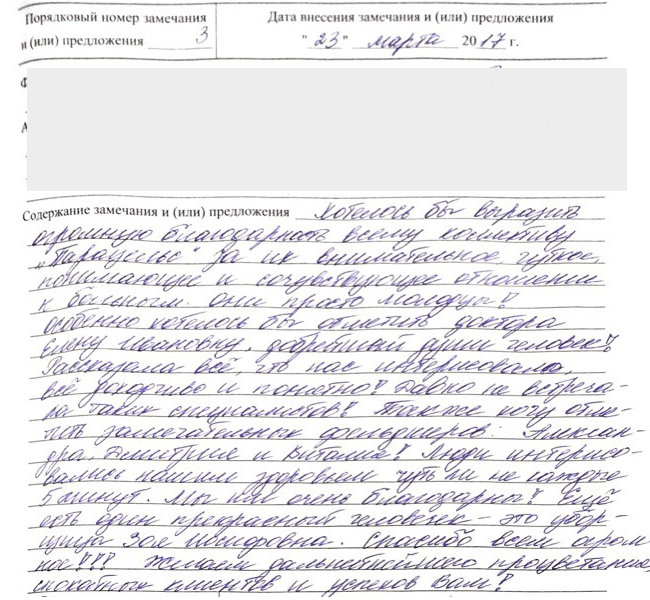 Порядковый номер замечания
и (или) предложения 3
Дата внесения замечания и (или) предложения
"23" марта 2017 г.
Содержание замечания и (или) предложения Хотелось бы выразить
огромную благодарность всему коллективу
„Парацельс" за их внимательное, чуткое,
понимающее и сочувствующее отношение
к больным. Они просто молодцы!!
Особенно хотелось бы отметить доктора
Елену Ивановну, добрейшей души человек!!
Рассказала всё, что нас интересовало,
всё доходчиво и понятно!! Давно не встреча-
ла таких специалистов!! Также хочу отме-
тить замечательных фельдшеров: Алексан-
дра, Дмитрия и Виталия!! Люди интересо-
вались нашим здоровьем чуть ли не каждые
5 минут. Мы им очень благодарны!! Ещё
есть один прекрасный человечек - это убор-
щица Зоя Иосифовна. Спасибо всем огром-
ное!!! Желаем дальнейшего процветания,
клиентов и успехов Вам!!